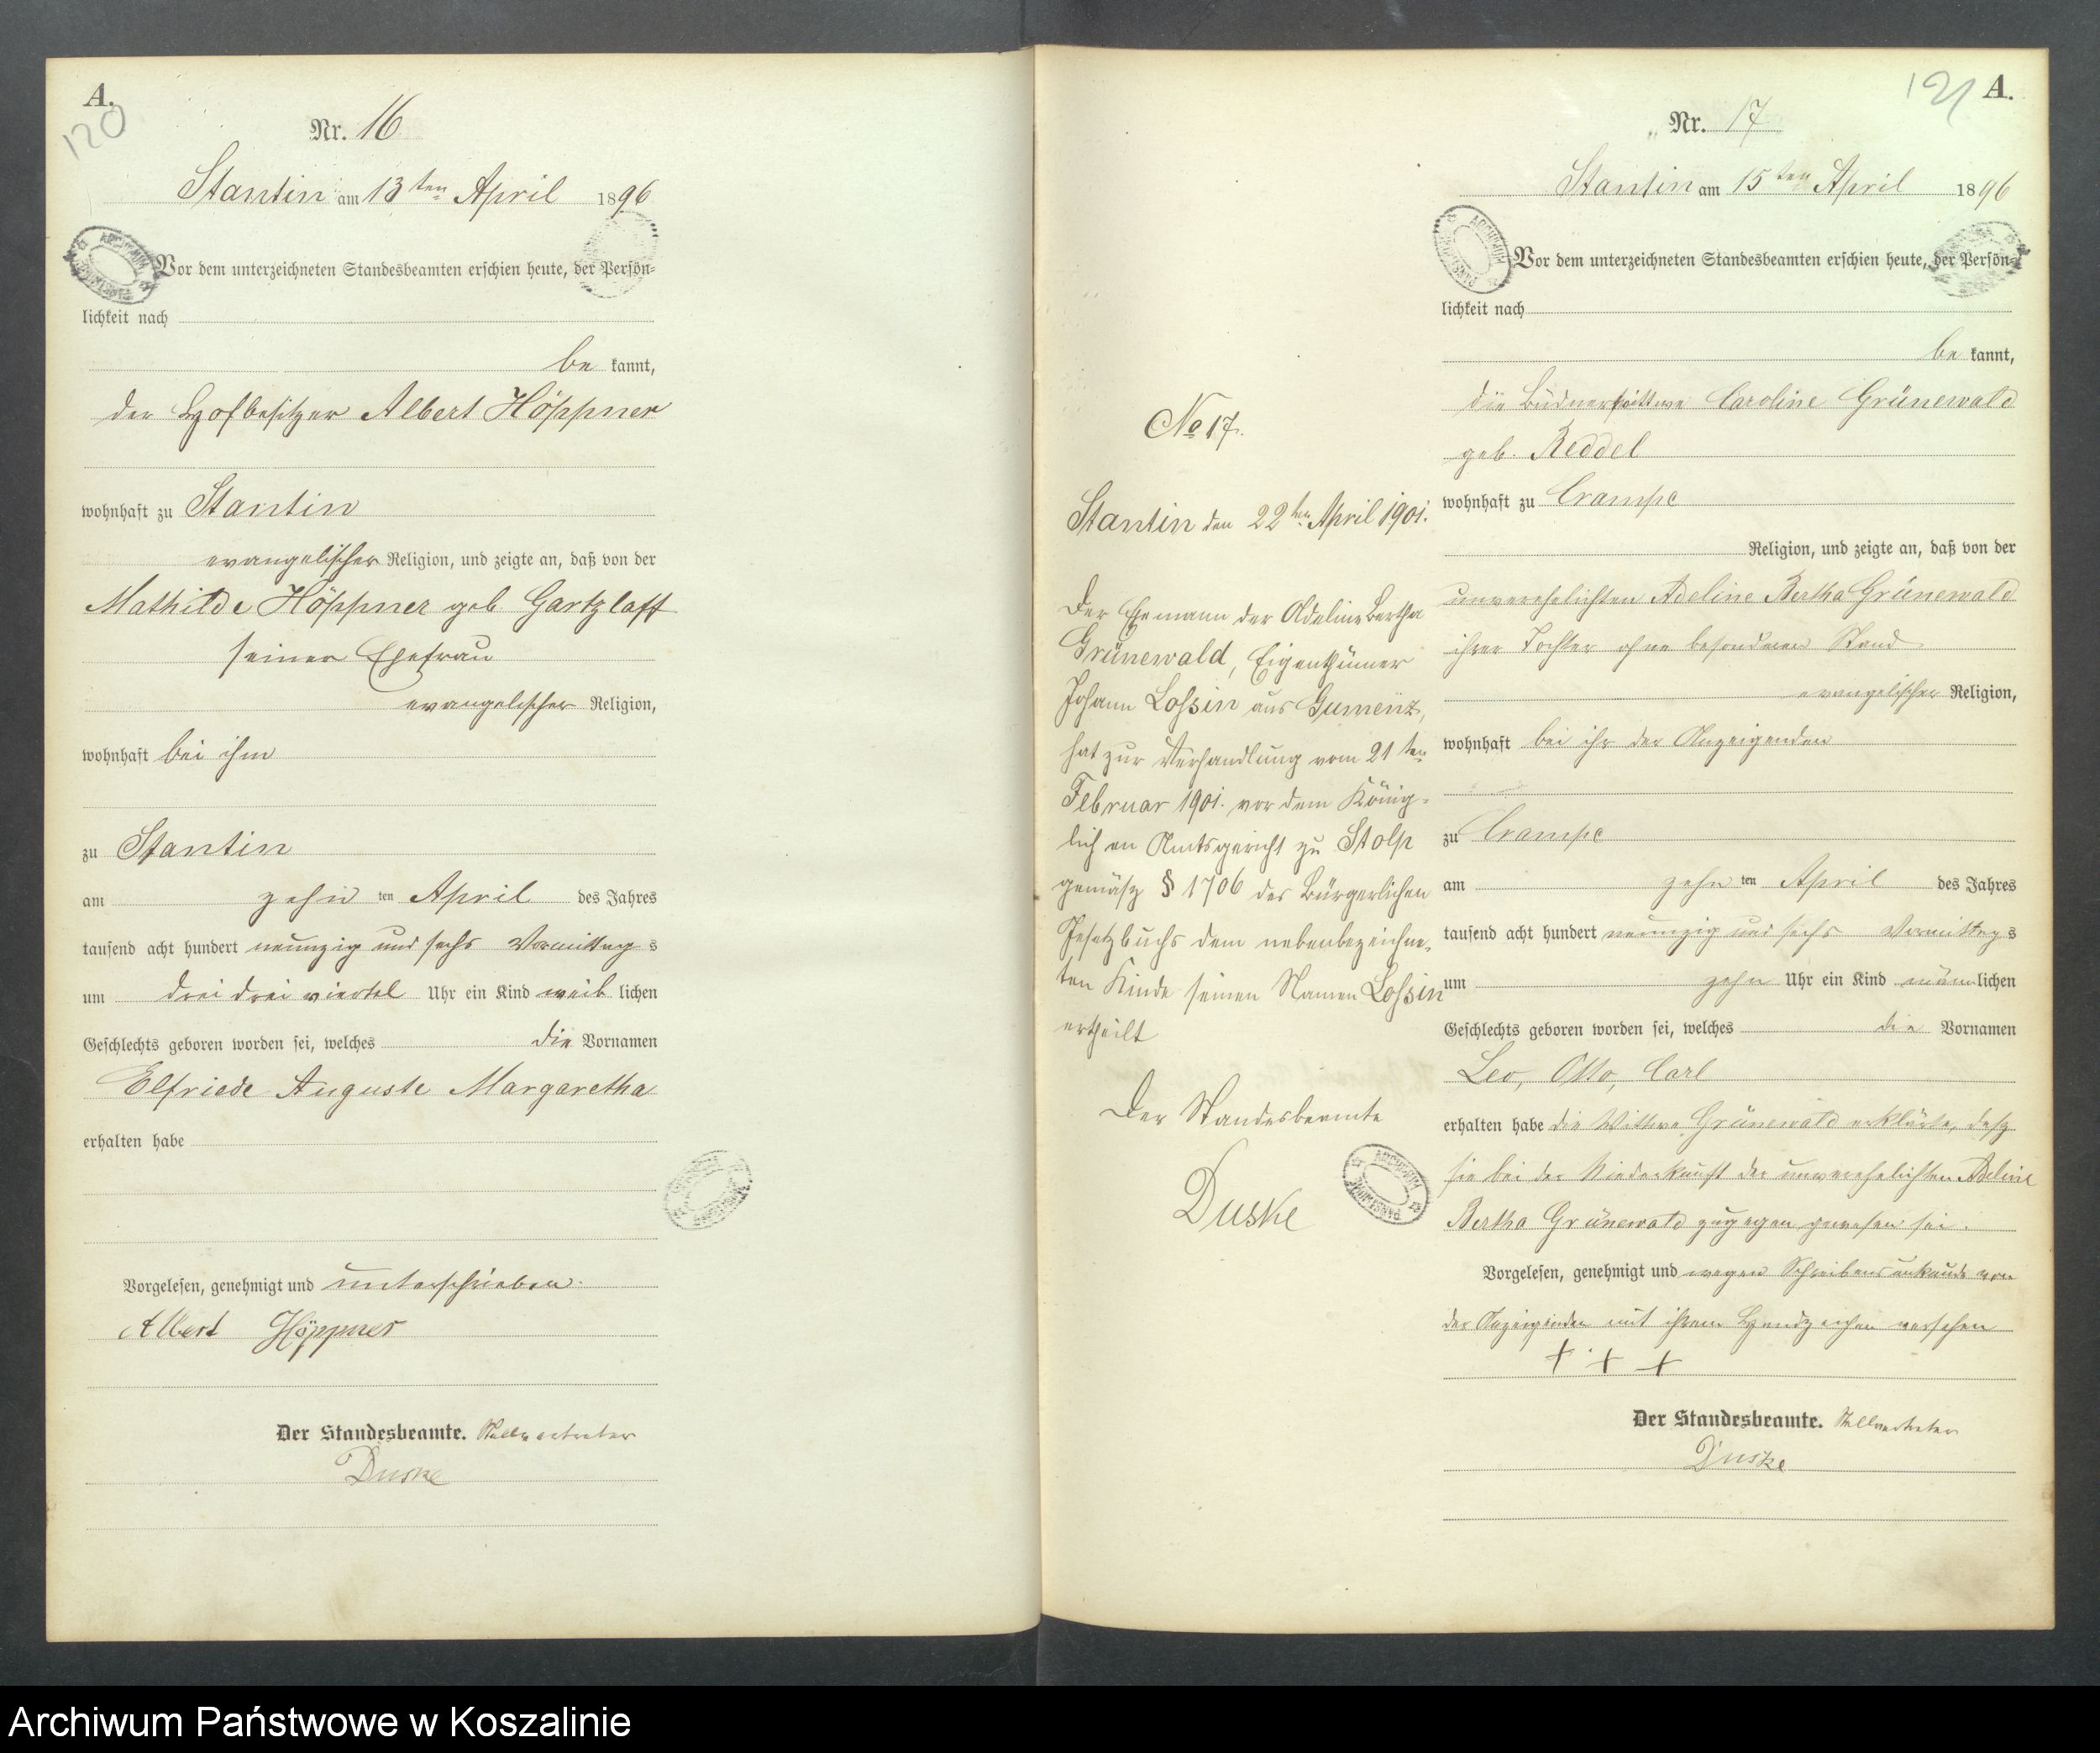 A.
120
Nr. 16
Stantin am 13ten April 1896
Vor dem unterzeichneten Standesbeamten erschien heute, der Persön=
lichkeit nach
be kannt,
der Hofbesitzer Albert Höppner
wohnhaft zu Stantin
evangelischer Religion, und zeigte an, daß von der
Mathilde Höppner geb Gartzlaff
seiner Ehefrau
evangelischer Religion,
wohnhaft bei ihm
zu Stantin
am zehn ten April des Jahres
tausend acht hundert neunzig und sechs Vormittag s
um drei drei viertel Uhr ein Kind weib lichen
Geschlechts geboren worden sei, welches die Vornamen
Elfriede Auguste Margaretha
erhalten habe
Vorgelesen, genehmigt und unterschrieben.
Albert Höppner
Der Standesbeamte. Stellvertreter
Duske
No 17.
Stantin den 22ten April 1901.
Der Ehemann der Adeline Bertha
Grünewald, Eigenthümer
Johann Lossin aus Gumenz,
hat zur Verhandlung vom 21ten
Februar 1901. vor dem König=
lichen Amtsgericht zu Stolp
gemäsz § 1706 des Bürgerlichen
Gesetzbuchs dem nebenbezeichne=
ten Kinde seinen Namen Lossin
ertheilt
Der Standesbeamte
Duske
121 A.
Nr. 17
Stantin am 15ten April 1896
Vor dem unterzeichneten Standesbeamten erschien heute, der Persön=
lichkeit nach
be kannt,
die Büdnerwittwe Caroline Grünewald
geb. Reddel
wohnhaft zu Crampe
Religion, und zeigte an, daß von der
unverehelichten Adeline Bertha Grünewald
ihrer Tochter ohne besonderen Stand
evangelischer Religion,
wohnhaft bei ihr der Anzeigenden
zu Crampe
am zehn ten April des Jahres
tausend acht hundert neunzig und sechs Vormittag s
um zehn Uhr ein Kind männlichen
Geschlechts geboren worden sei, welches die Vornamen
Leo, Otto, Carl
erhalten habe die Wittwe Grünewald erklärte, dasz
sie bei der Niederkunft der unverehelichten Adeline
Bertha Grünewald zugegen gewesen sei.
Vorgelesen, genehmigt und wegen Schreibensunkunde von
der Anzeigenden mit ihrem Handzeichen versehen
+ + +
Der Standesbeamte. Stellvertreter
Duske
Archiwum Państwowe w Koszalinie